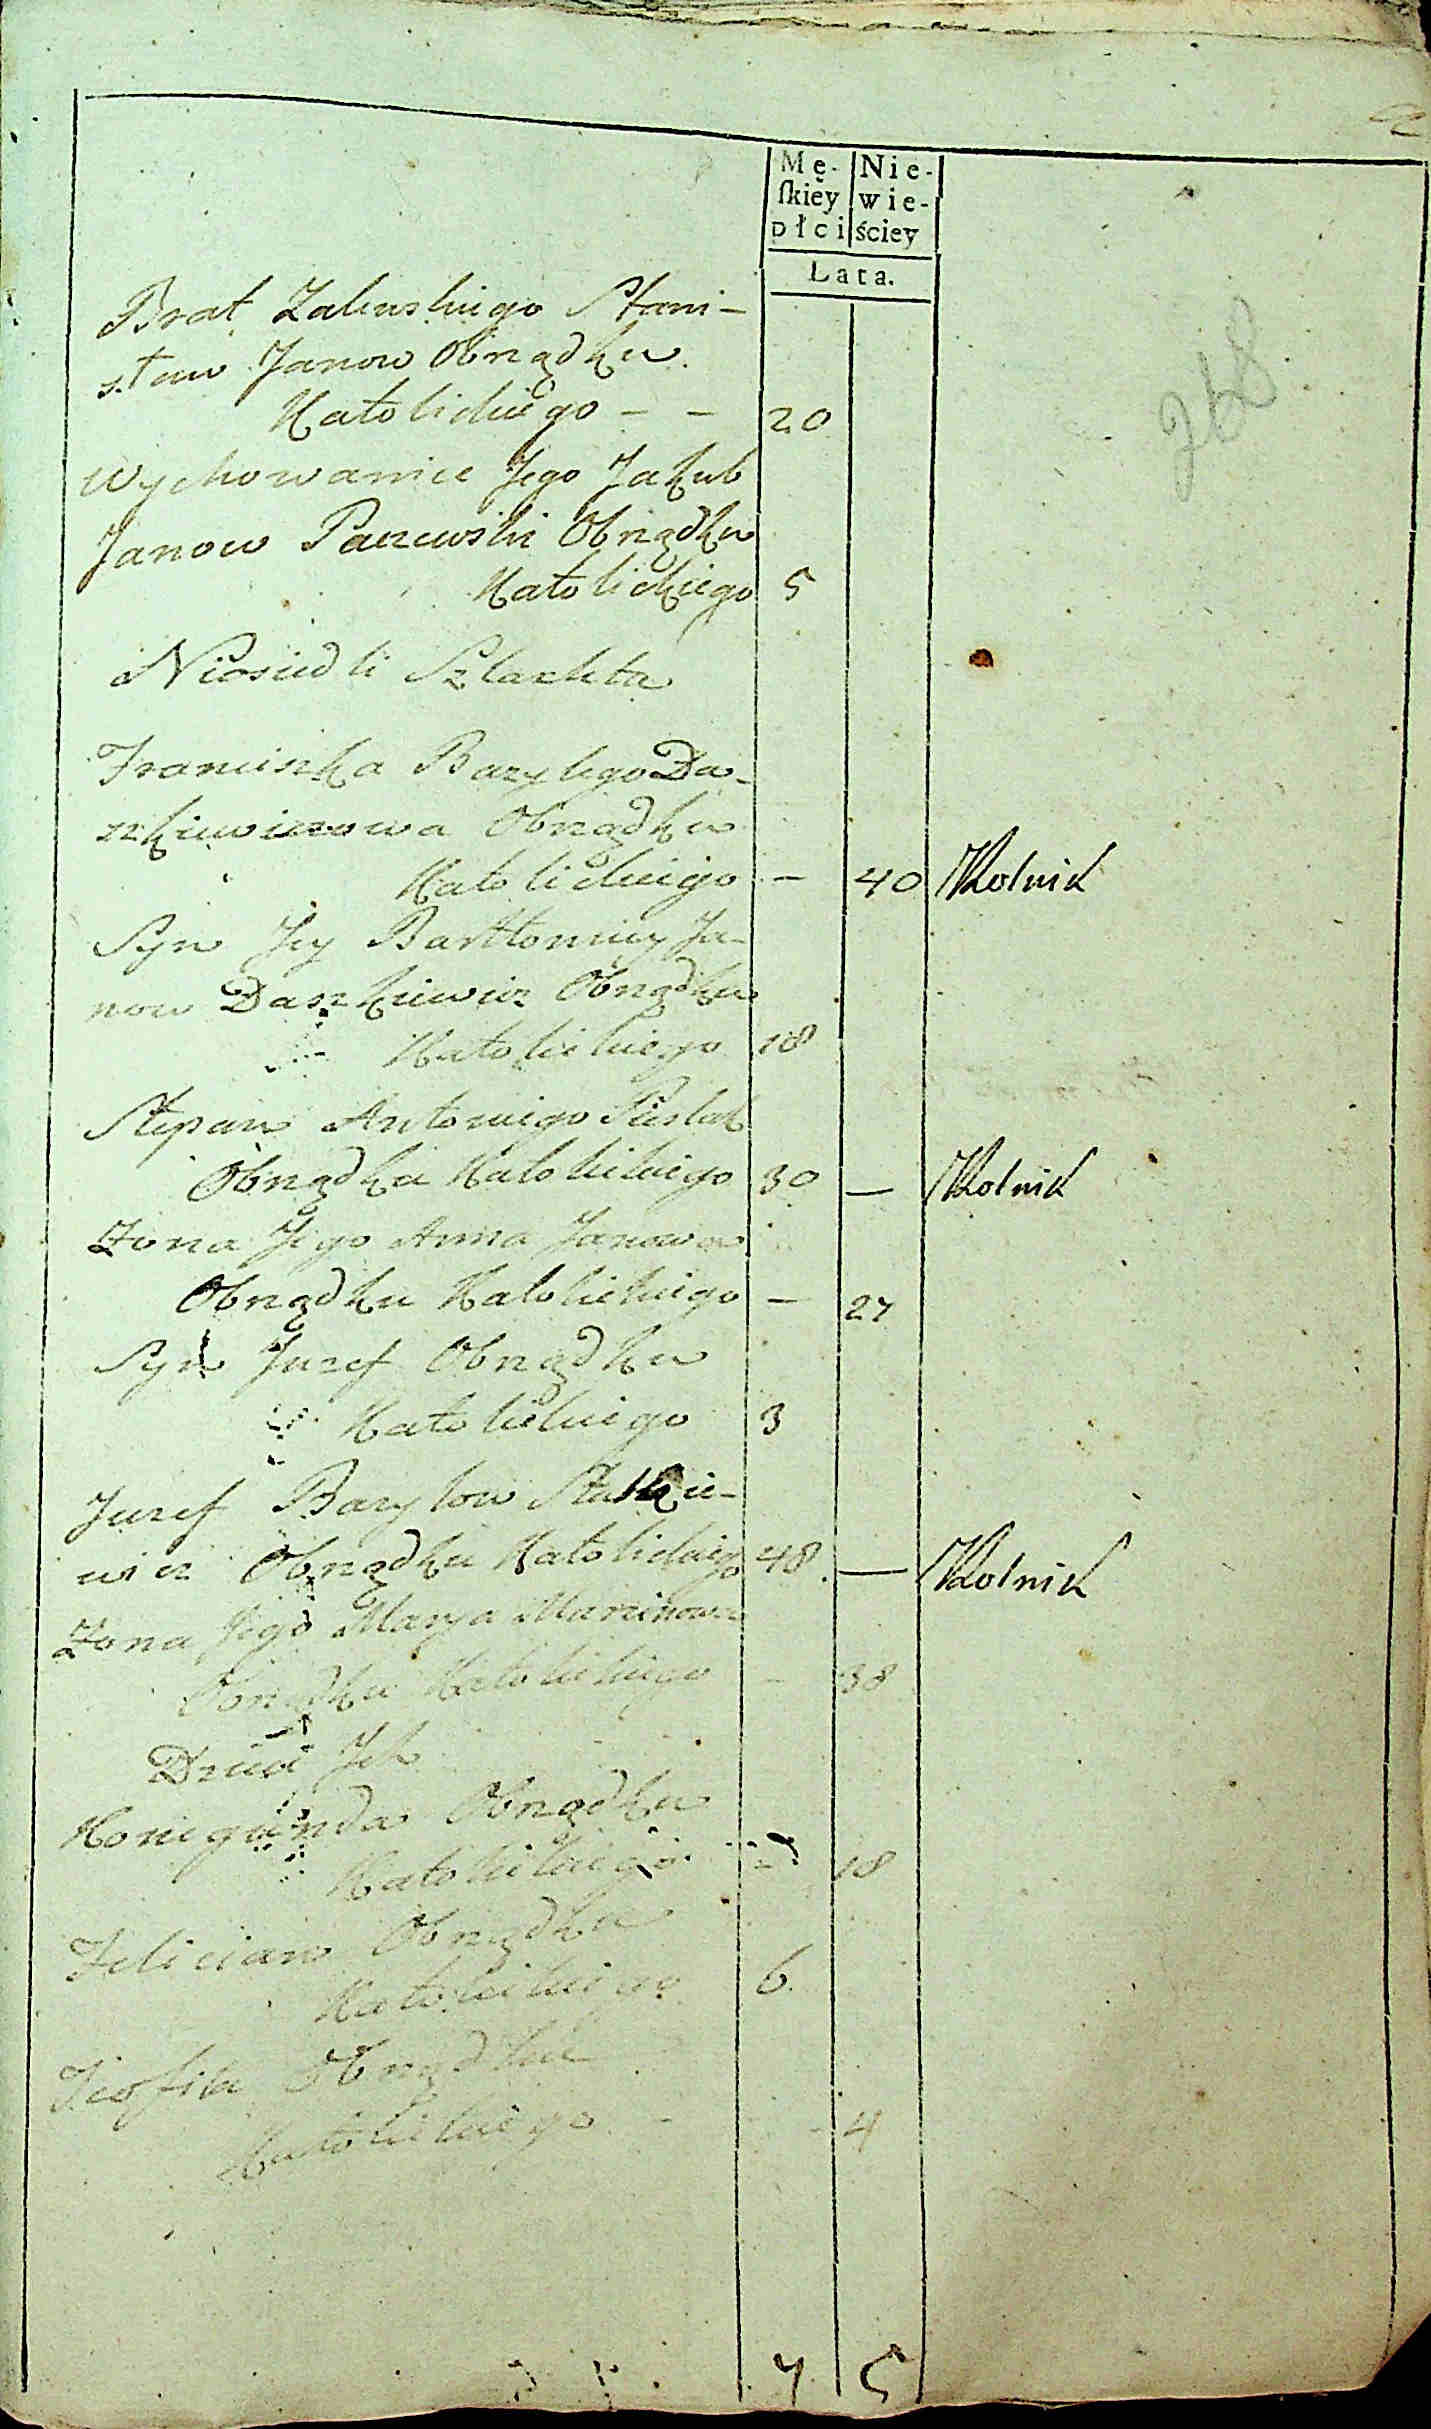 Mę- Nie-
skiey wie-
płci ściey
Lata.
Brat Zaleuskiego Stani-
sław Janow Obrządku
Katolickiego - - 20
Wychowaniec Jego Jakub
Janow Obrządku
Katolickiego 5
Nieosiedli Szlachta
Franciszka Bazylego Da-
szkiewiczowa Obrządku
Katolickiego - 40 Rolnik
Syn Jey Bartłomiey Ja-
now Daszkiewicz Obrządku
Katolickiego 18
Stepan Antoniego
Obrządku Katolickiego 30 — Rolnik
Zona Jego Anna Janowa
Obrządku Katolickiego - 27
Syn Juzef Obrządku
Katolickiego 3
Juzef Bazylow
wicz Obrządku Katolickiego 48. — Rolnik
Zona Jego Marya
Obrządku Katolickiego - 38
Dzieci Jch
Konegunda Obrządku
Katolickiego - 18
Felician Obrządku
Katolickiego 6.
Teofila Obrządku
Katolickiego - - 4
7 5